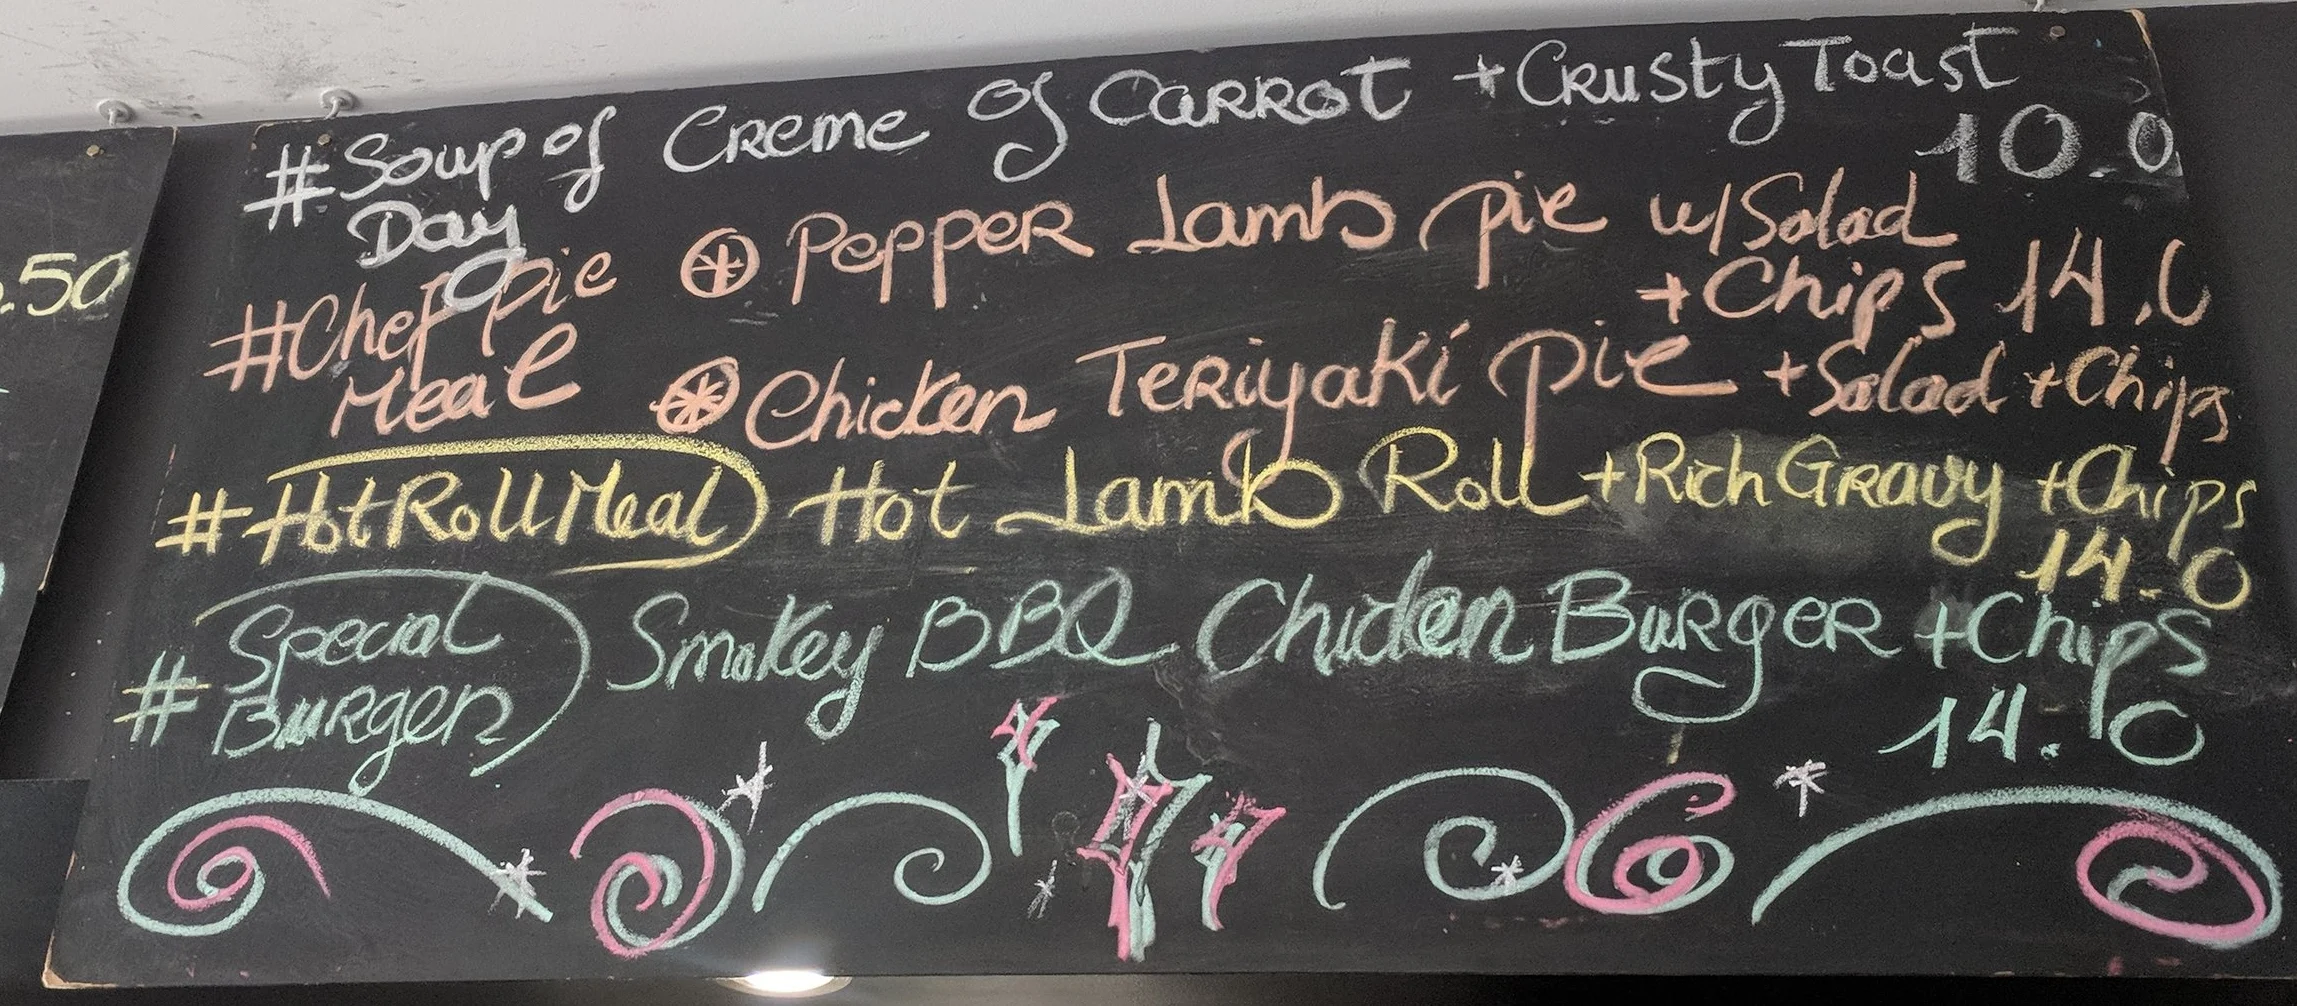 .50
# Soup of Creme Of Carrot + Crusty Toast
Day 10.0
# Chef Pie ⊕ Pepper Lamb Pie w/ Salad
+ Chips 14.0
Meal ⊛ Chicken Teriyaki Pie + Salad + Chips
# Hot Roll Meal Hot Lamb Roll + Rich Gravy + Chips
14.0
# Special Smokey BBQ Chicken Burger + Chips
Burger 14.0